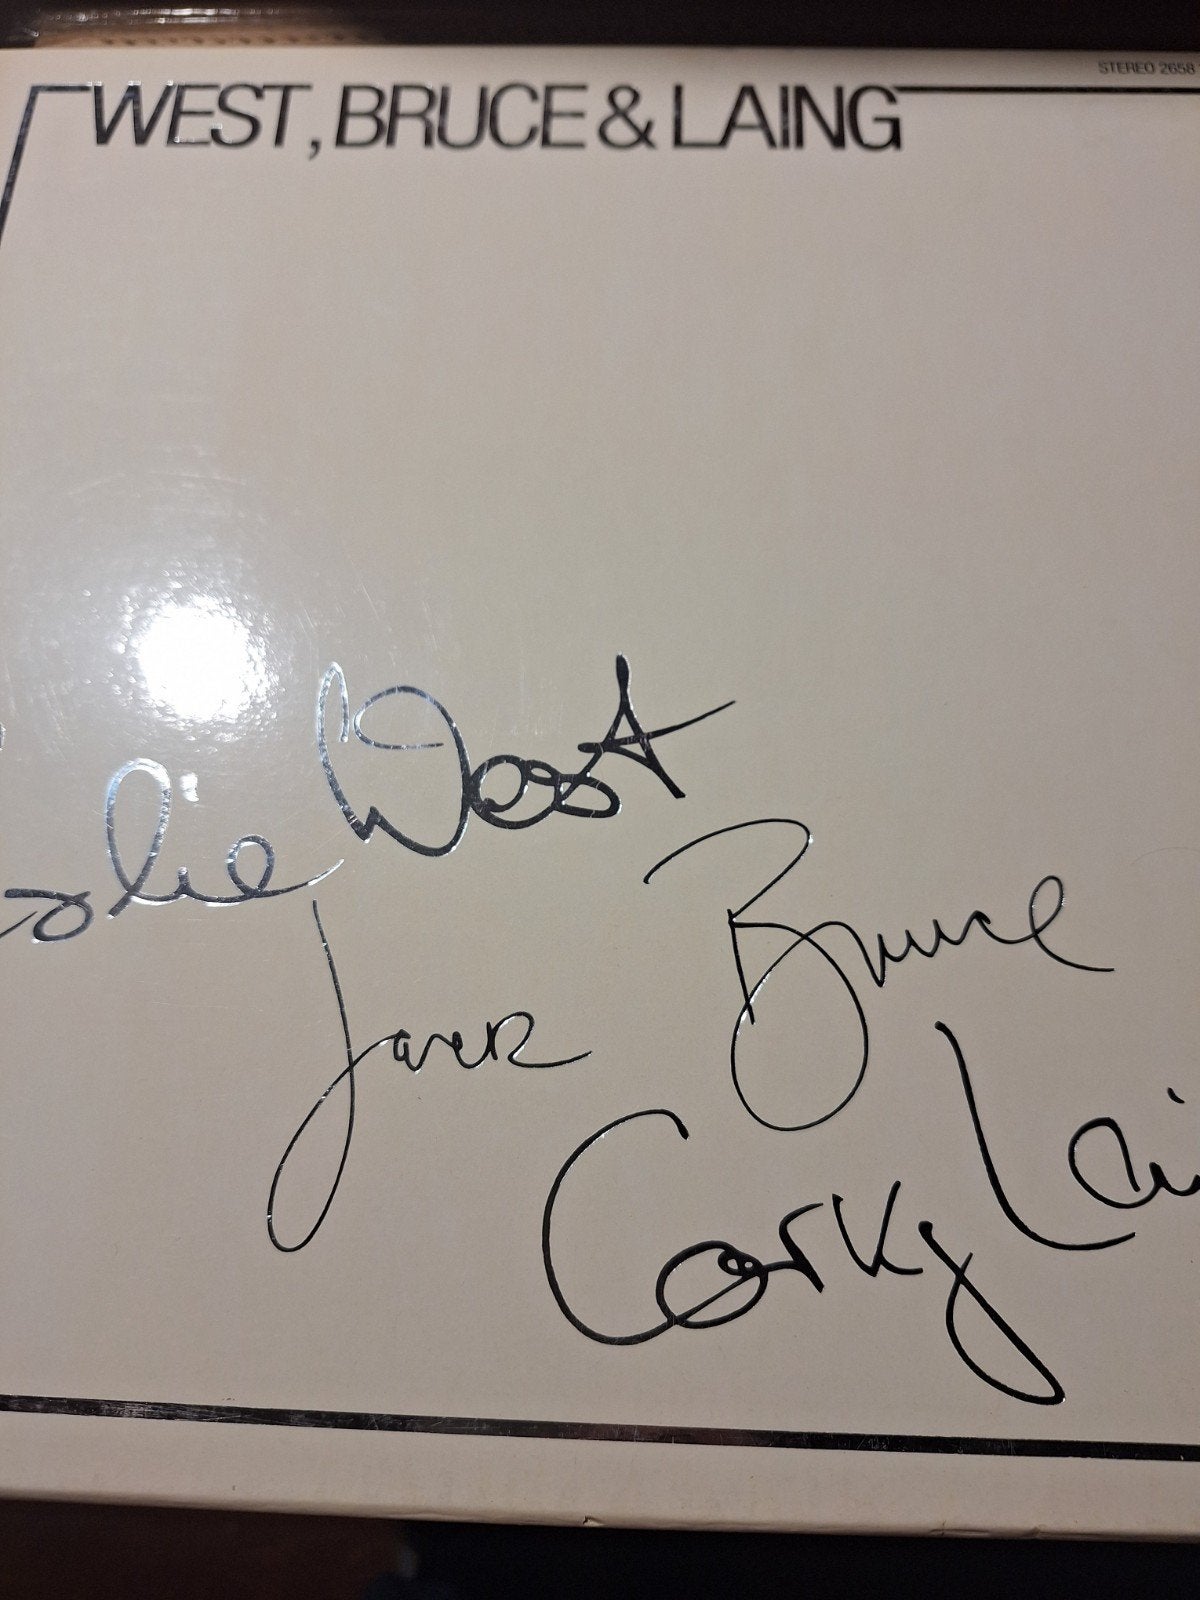 STEREO 2658
WEST, BRUCE & LAING
eslie West
Jack Bruce
Corky Lai